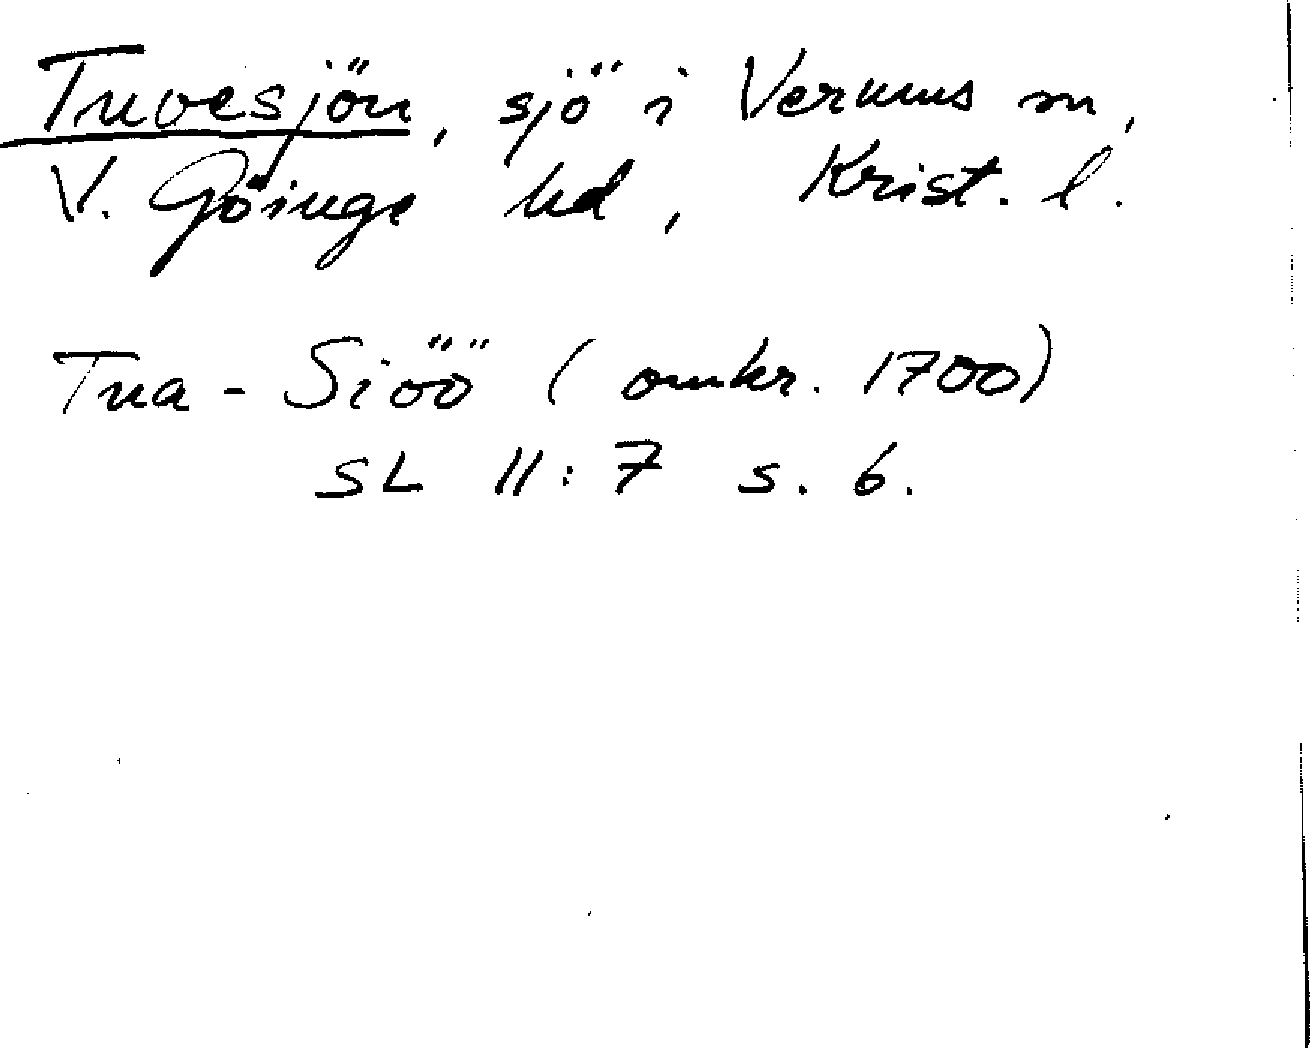 Tuvesjön, sjö i Verums sn,
V. Göinge hd, Krist. l.
Tua-Siöö (omkr. 1700)
SL II:7 s. 6.